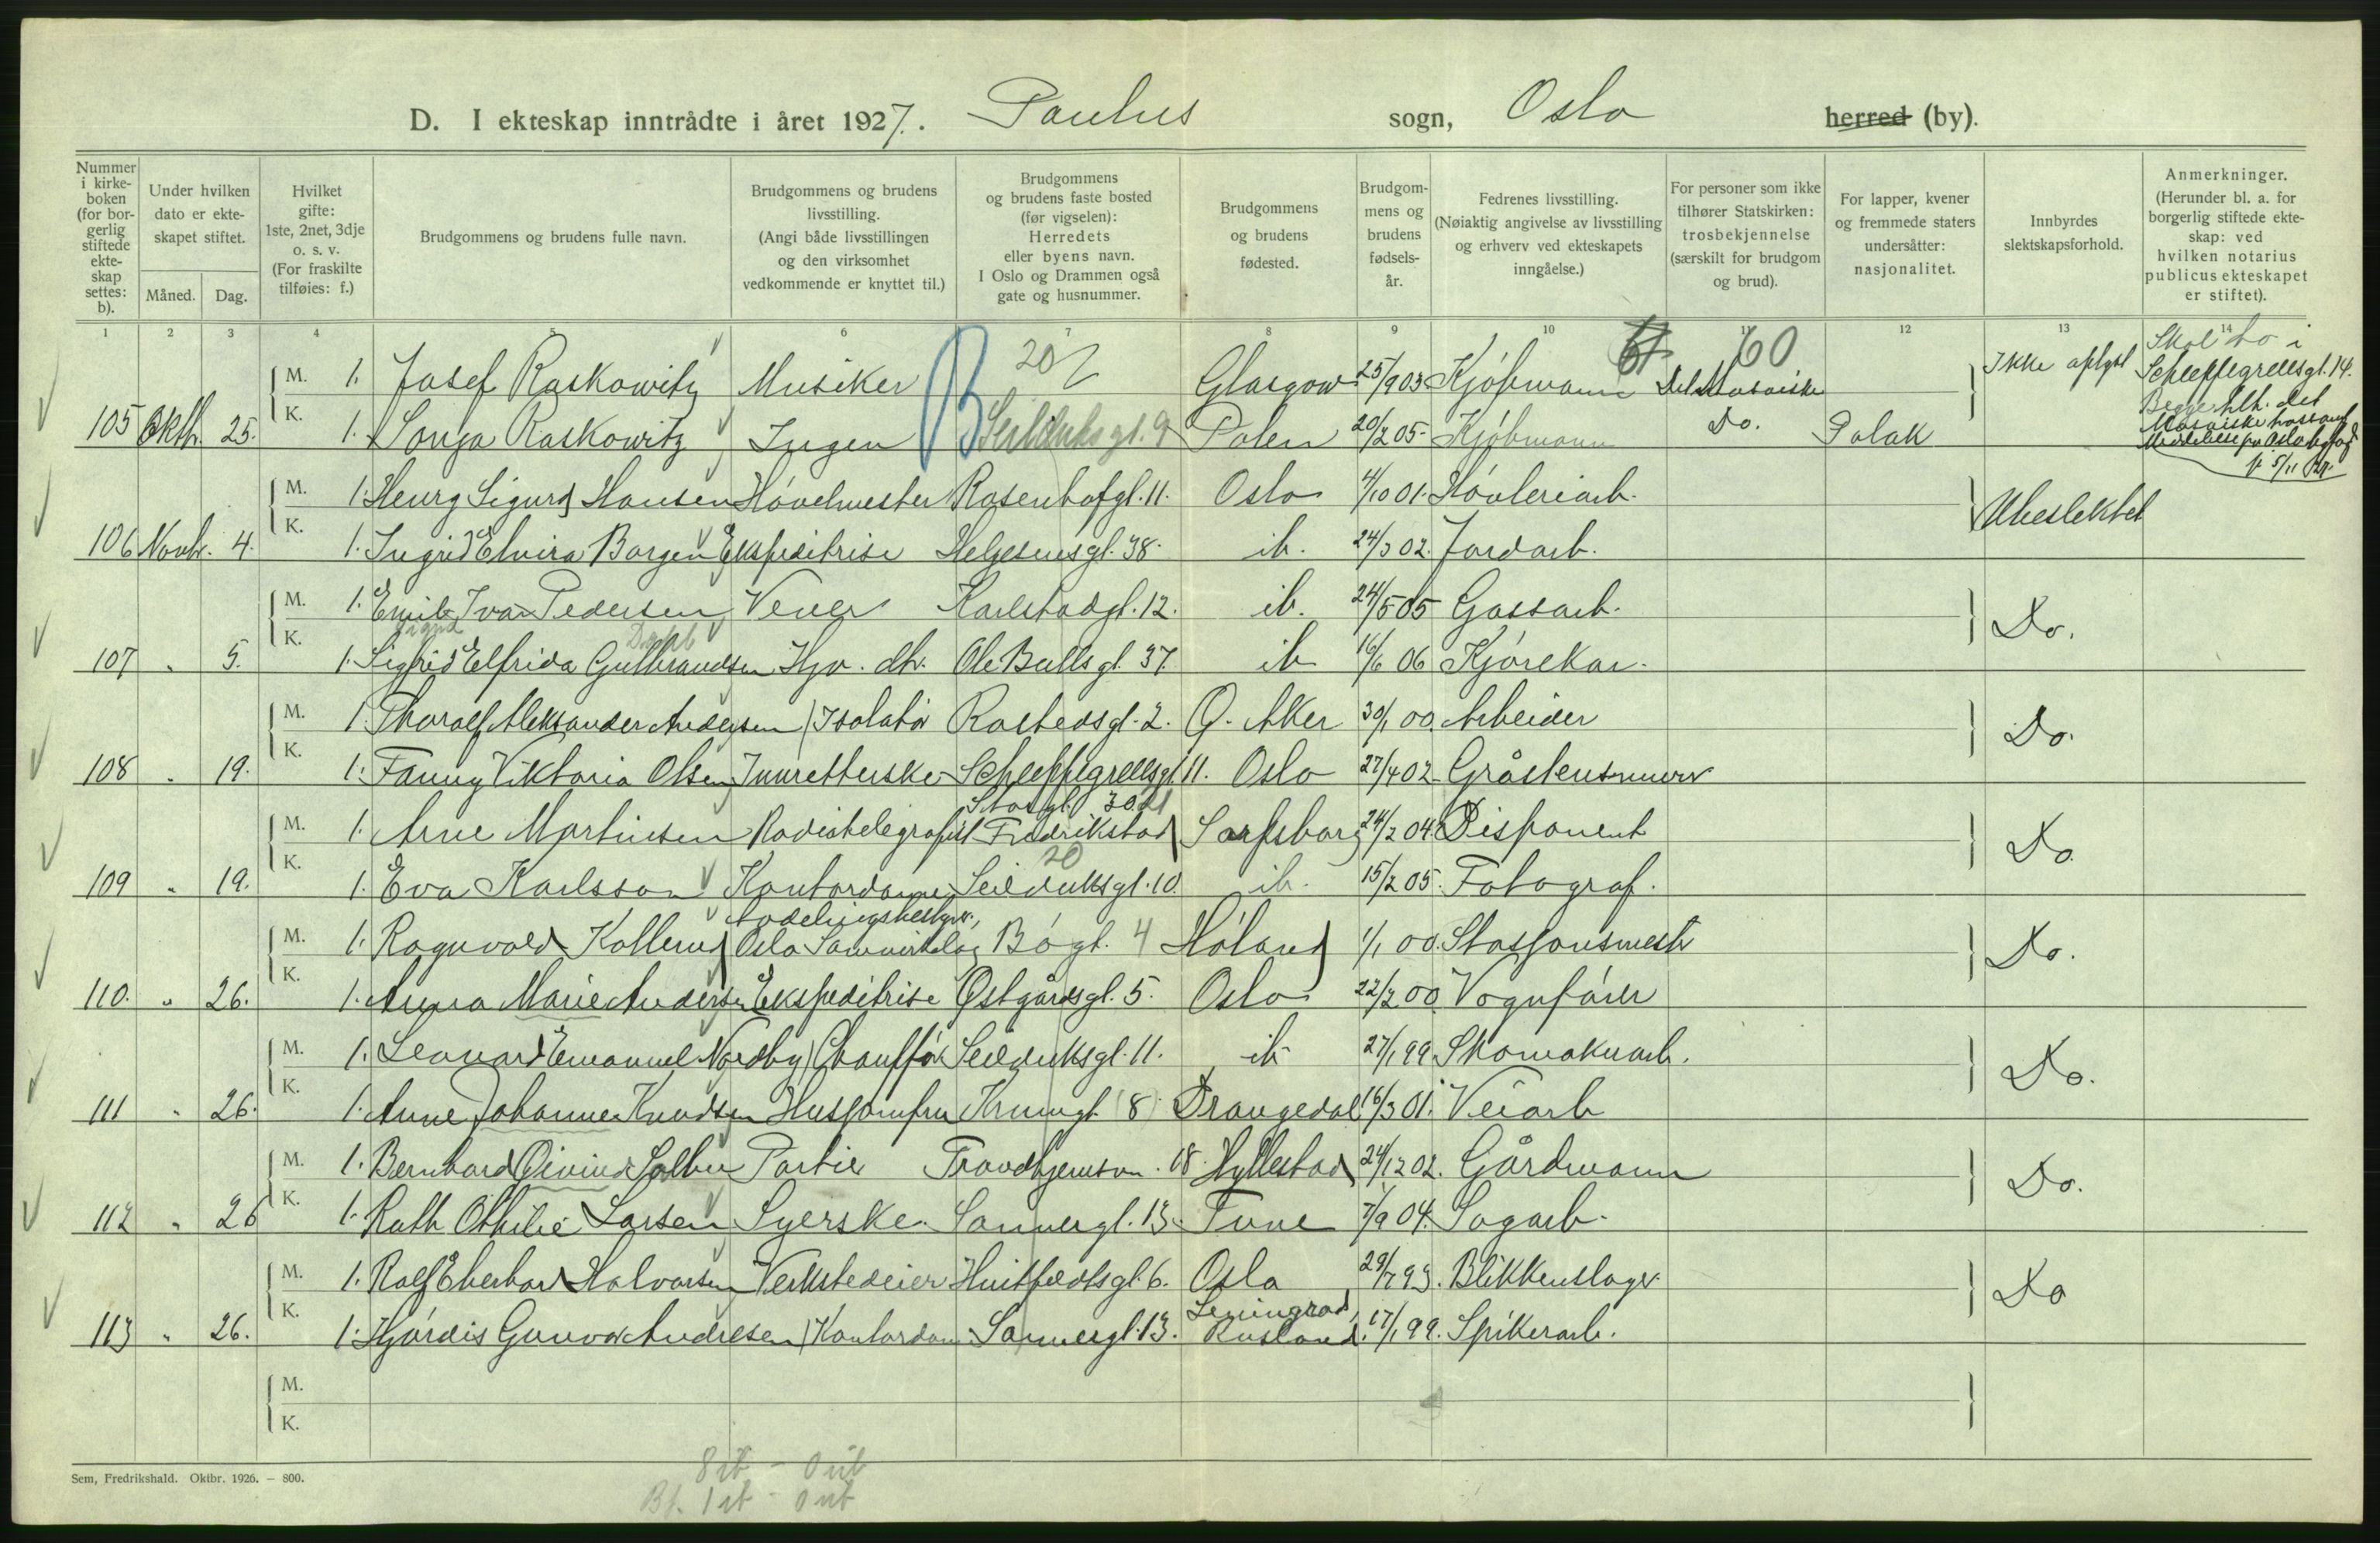 D. I ekteskap inntrådte i året 1927. Paulus sogn, Oslo herred (by).
Nummer i kirkeboken (for borgerlig stiftede ekteskap settes: b).
Under hvilken dato er ekteskapet stiftet.
Måned. Dag.
Hvilket gifte: 1ste, 2net, 3dje o. s. v. (For fraskilte tilføies: f.)
Brudgommens og brudens fulle navn.
Brudgommens og brudens livsstilling. (Angi både livsstillingen og den virksomhet vedkommende er knyttet til.)
Brudgommens og brudens faste bosted (før vigselen): Herredets eller byens navn. I Oslo og Drammen også gate og husnummer.
Brudgommens og brudens fødested.
Brudgommens og brudens fødselsår.
Fedrenes livsstilling. (Nøiaktig angivelse av livsstilling og erhverv ved ekteskapets inngåelse.)
For personer som ikke tilhører Statskirken: trosbekjennelse (særskilt for brudgom og brud).
For lapper, kvener og fremmede staters undersåtter: nasjonalitet.
Innbyrdes slektskapsforhold.
Anmerkninger. (Herunder bl. a. for borgerlig stiftede ekteskap: ved hvilken notarius publicus ekteskapet er stiftet).
1 2 3 4 5 6 7 8 9 10 11 12 13 14
M. 1. Josef Raskowitz Musiker 20 Glasgow 25/9 03 Kjøbmann 60 Det Mosaiske Ikke oplyst Skal bo i Schleppegrellsgt. 14.
105 Oktb. 25. K. 1. Sonja Raskowitz Ingen B Seilduksgt. 9 Polen 20/2 05 Kjøbmann Do. Polak Begge tilh. det Mosaiske trossamf.
M. 1. Henry Sigurd Hansen Høvelmester Rosenhofgt. 11. Oslo 4/10 01. Høvleriarb. Ubeslektet
106 Novbr. 4. K. 1. Ingrid Elvira Borgen Ekspeditrise Helgesensgt. 38. ib. 24/3 02. Jordarb.
M. 1. Emil Ivar Pedersen Vever Karlstadgt. 12. ib. 24/5 05 Gassarb. Do.
107 " 5. K. 1. Sigfrid Elfrida Gulbrandsen Hjv. dtr. Ole Bullsgt. 37. ib 16/6 06 Kjørekar.
M. 1. Thoralf Aleksander Andersen Isolatør Rostedsgt. 2. Ø. Aker 30/1 00. Arbeider Do.
108 " 19. K. 1. Fanny Viktoria Olsen Innretterske Schleppegrellsgt. 11. Oslo 27/4 02 Gråstensmurer
M. 1. Arne Martinsen Radiotelegrafist Storgt. 30 Fredrikstad Sarpsborg 24/2 04. Disponent Do.
109 " 19. K. 1. Eva Karlsson Kontordame 20 Seilduksgt. 10 ib. 15/2 05. Fotograf.
M. 1. Ragnvald Kollerud Avdelingsbestyr. Oslo Samvirkelag Bøgt. 4 Høland 1/1 00. Stasjonsmestr Do.
110. " 26. K. 1. Anna Marie Andersen Ekspeditrise Østgårdsgt. 5. Oslo 22/2 00. Vognfører
M. 1. Leonard Emanuel Nordby Chauffør Seilduksgt. 11. ib 27/1 99 Skomakerarb. Do.
111 " 26. K. 1. Anne Johanne Knudsen Husjomfru Krumgt. 8. Drangedal 16/3 01. Veiarb
M. 1. Bernhard Øivind Solber Portier Trondhjemsvn. 18. Hyllestad 24/12 02. Gårdmann Do.
112 " 26 K. 1. Ruth Othilie Larsen Syerske. Sannergt. 13. Tune 7/9 04. Sagarb.
M. 1. Rolf Eberhard Halvorsen Verkstedeier Huitfeldtsgt. 6. Oslo 29/7 93. Blikkenslager. Do
113 " 26. K. 1. Hjørdis Gunvor Andresen Kontordam Sannergt. 13. Leningrad, Rusland. 17/1 99. Spikerarb.
M.
K.
Sem, Fredrikshald. Oktbr. 1926. – 800.